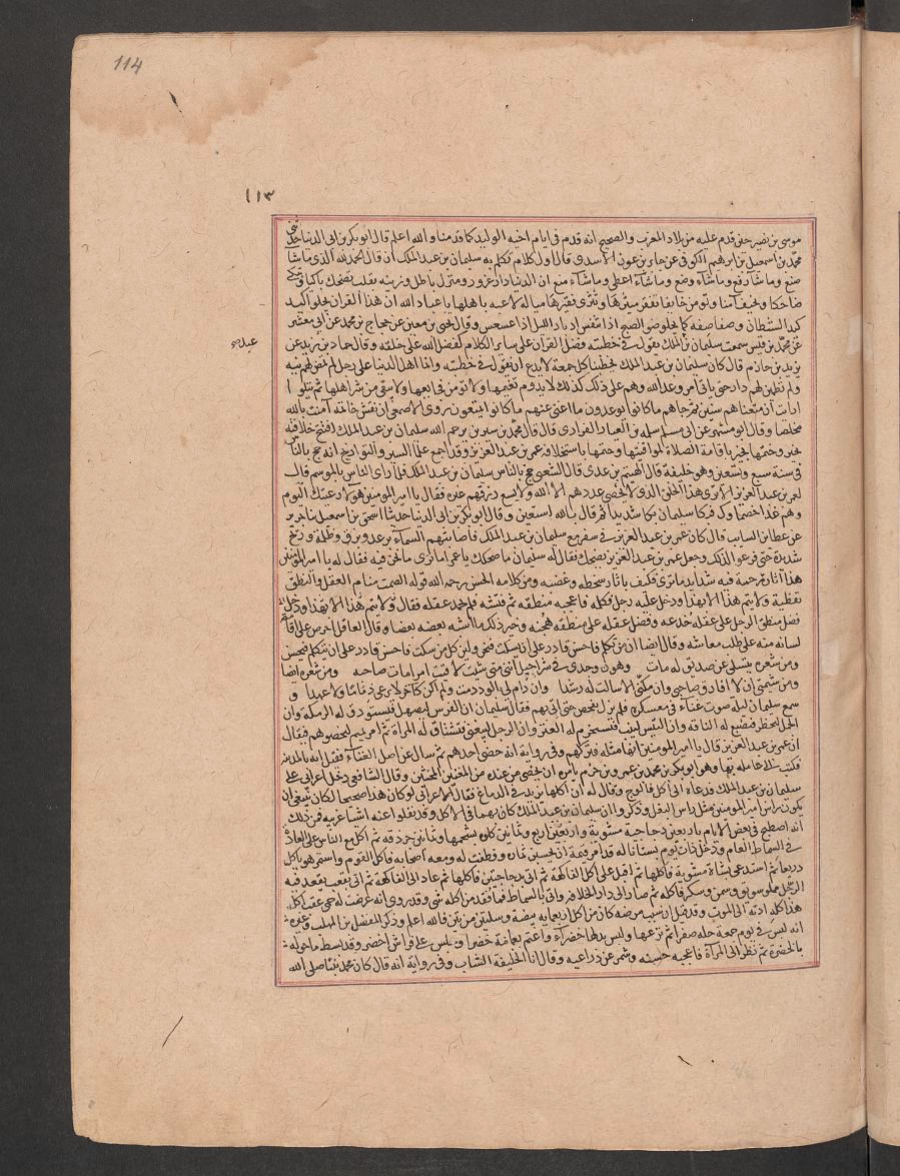 114
١١٣
موسى بن نصير حين قدم عليه من بلاد المغرب والصحيح انه قدم فى ايام اخيه الوليد كما قدمنا والله اعلم قال ابو بكر بن ابى الدنيا حدثنى
محمد بن اسمعيل بن ابرهيم الكوفى عن جابر بن عون الاسدى قال اول كلام تكلم به سليمان بن عبد الملك ان قال الحمد لله الذى ماشا
صنع وماشا رفع وماشاء وضع وماشاء اعطى وماشاء منع ان الدنيا دار غرور ومنزل باطل وزينة تقلب تضحك باكيا وتبكى
ضاحكا وتخيف آمنا وتومن خايفا تفقر مثريها وتثرى فقيرها ميالة لاعبة باهلها يا عباد الله ان هذا القران يجلو كيد
كيد الشيطان وصفاصفه كما يجلو ضو الصبح اذا تنفس ادبار الليل اذا عسعس وقال يحيى بن معين عن حجاج بن محمد عن ابى معشر
عن محمد بن قيس سمعت سليمان بن الملك يقول فى خطبته فضل القرآن على ساير الكلام كفضل الله على خلقه وقال حماد بن زيد عن
عبد صح
يزيد بن حازم قال كان سليمان بن عبد الملك يخطبنا كل جمعة لا يدع ان يقول فى خطبته وانما اهل الدنيا على رحل لم تمض لهم نية
ولم تطمئن لهم دار حتى ياتى امر وعد الله وهم على ذلك كذلك لا يدوم نعيمها ولا تومن فجايعها ولا يبقى من شر اهلها ثم يتلوا ا
فرايت ان متعناهم سنين ثم جاهم ما كانوا يوعدون ما اغنى عنهم ما كانوا يمتعون روى الاصمعى ان نقش خاتمه آمنت بالله
مخلصا وقال ابو مسهر عن ابى مسلم سلمه بن العيار الفزارى قال قال محمد بن سيرين يرحم الله سليمان بن عبد الملك افتتح خلافته
بخير وختمها بخير باقامة الصلاة لمواقيتها وختمها باستخلافه عمر بن عبد العزيز وقد اجمع علما السير والتواريخ انه حج بالناس
فى سنة سبع وتسعين وهو خليفة قال الهيثم بن عدى قال الشعبى حج بالناس سليمان بن عبد الملك فلما راى الناس بالموسم قال
لعمر بن عبد العزيز الا ترى هذا الخلق الذى لا يحصى عددهم الا الله ولا يسع رزقهم غيره فقال يا امير المومنين هؤلا رعيتك اليوم
وهم غدا خصماوك فبكا سليمان بكا شديدا ثم قال بالله استعين وقال ابو بكر بن ابى الدنيا حدثنا اسحق بن اسمعيل ثنا جرير
عن عطا بن السايب قال كان عمر بن عبد العزيز فى سفر مع سليمان بن عبد الملك فاصابتهم السماء برعد وبرق وظلمة وريح
شديدة حتى فزعوا لذلك وجعل عمر بن عبد العزيز يضحك فقال له سليمان ما يضحك يا عمر اما ترى ما نحن فيه فقال له يا امير المومنين
هذا آثار رحمته فيه شدايد ما ترى فكيف باثار سخطه وغضبه ومن كلامه الحسن رحمه الله قوله الصمت منام العقل والنطق
يقظته ولا يتم هذا الا بهذا ودخل عليه رجل فكلمه فاعجبه منطقه ثم فتشه فلم يحمد عقله فقال
فضل منطق الرجل على عقله خدعه وفضل عقله على منطقه هجنه وخير ذلك ما اشبه بعضه بعضا وقال العاقل احرص على اقامة
لسانه منه على طلب معاشه وقال ايضا ان من تكلم فاحسن قادر على ان يسكت فيحسن وليس كل من سكت فاحسن قادر على ان يتكلم فيحسن
ومن شعره يتسلى عن صديق له مات وهون وجدى فى شراحيل اننى متى شئت لاقيت امرا مات صاحبه ومن شعره ايضا
ومن شيمتى ان لا افارق صاحبى وان ملنى الا سالت له رشدا وان دام لى بالود دمت ولم اكن كآخر لا يرعى ذماما ولا عهدا و
سمع سليمان ليلة صوت غناء فى معسكره فلم يزل يفحص حتى اتى بهم فقال سليمان ان الفرس ليصهل فتستودق له الرمكه وان
الجمل ليخطر فتضبع له الناقه وان التيس لينب فتستحرم له العنز وان الرجل ليغنى فتشتاق له المراة ثم امر بهم ليخصوهم فيقال
ان عمر بن عبد العزيز قال يا امير المومنين انها مثله فتركهم وفى رواية انه خصى احدهم ثم سال عن اصل الغناء فقيل انه بالمدينه
فكتب الى عامله بها وهو ابو بكر بن محمد بن عمرو بن حزم يامره ان يخصى من عنده من المغنين المخنثين وقال الشافعى دخل اعرابى على
سليمان بن عبد الملك فدعاه الى اكل فالوذج وقال له ان اكلها يزيد فى الدماغ فقال الاعرابى لو كان هذا صحيحا لكان ينبغى ان
يكون راس امير المومنين مثل راس البغل وذكروا ان سليمان بن عبد الملك كان نهما فى الاكل وقد نقلوا عنه اشيا غريبه فمن ذلك
انه اصطبح فى بعض الايام باربعين دجاجة مشوية واربع وثمانين كلوة بشحمها وثمانين جردقه ثم اكل مع الناس على العادة
فى السماط العام ودخل ذات يوم بستانا له قد امر قيمه ان يحبس ثماره وقطفت له ومعه اصحابه فاكل القوم واستمر هو ياكل
ذريعا ثم استدعى بشاة مشوية فاكلها ثم اقبل على اكل الفاكهة ثم اتى بدجاجتين فاكلها ثم عاد الى الفاكهة ثم اتى بقعب يقعد فيه
الرجل مملو سويق وسمن وسكر فاكله ثم صار الى دار الخلافه واتى بالسماط فما فقد من اكله شى وقد روى انه عرضت له حمى عقب اكله
هذا اكله ادته الى الموت وقد قيل ان سبب مرضه كان من اكل اربعمايه بيضه وسلتين من تين فالله اعلم وذكر المفضل بن المهلب وغيره
انه لبس فى يوم جمعة حلة صفرا ثم نزعها ولبس بدلها خضراء واعتم بعمامة خضرا وجلس على فراش اخضر وقد بسط ما حوله
بالخضرة ثم نظر الى المرآة فاعجبه حسنه وشمر عن ذراعيه وقال انا الخليفة الشاب وفى رواية انه قال كان محمد نبيا صلى الله